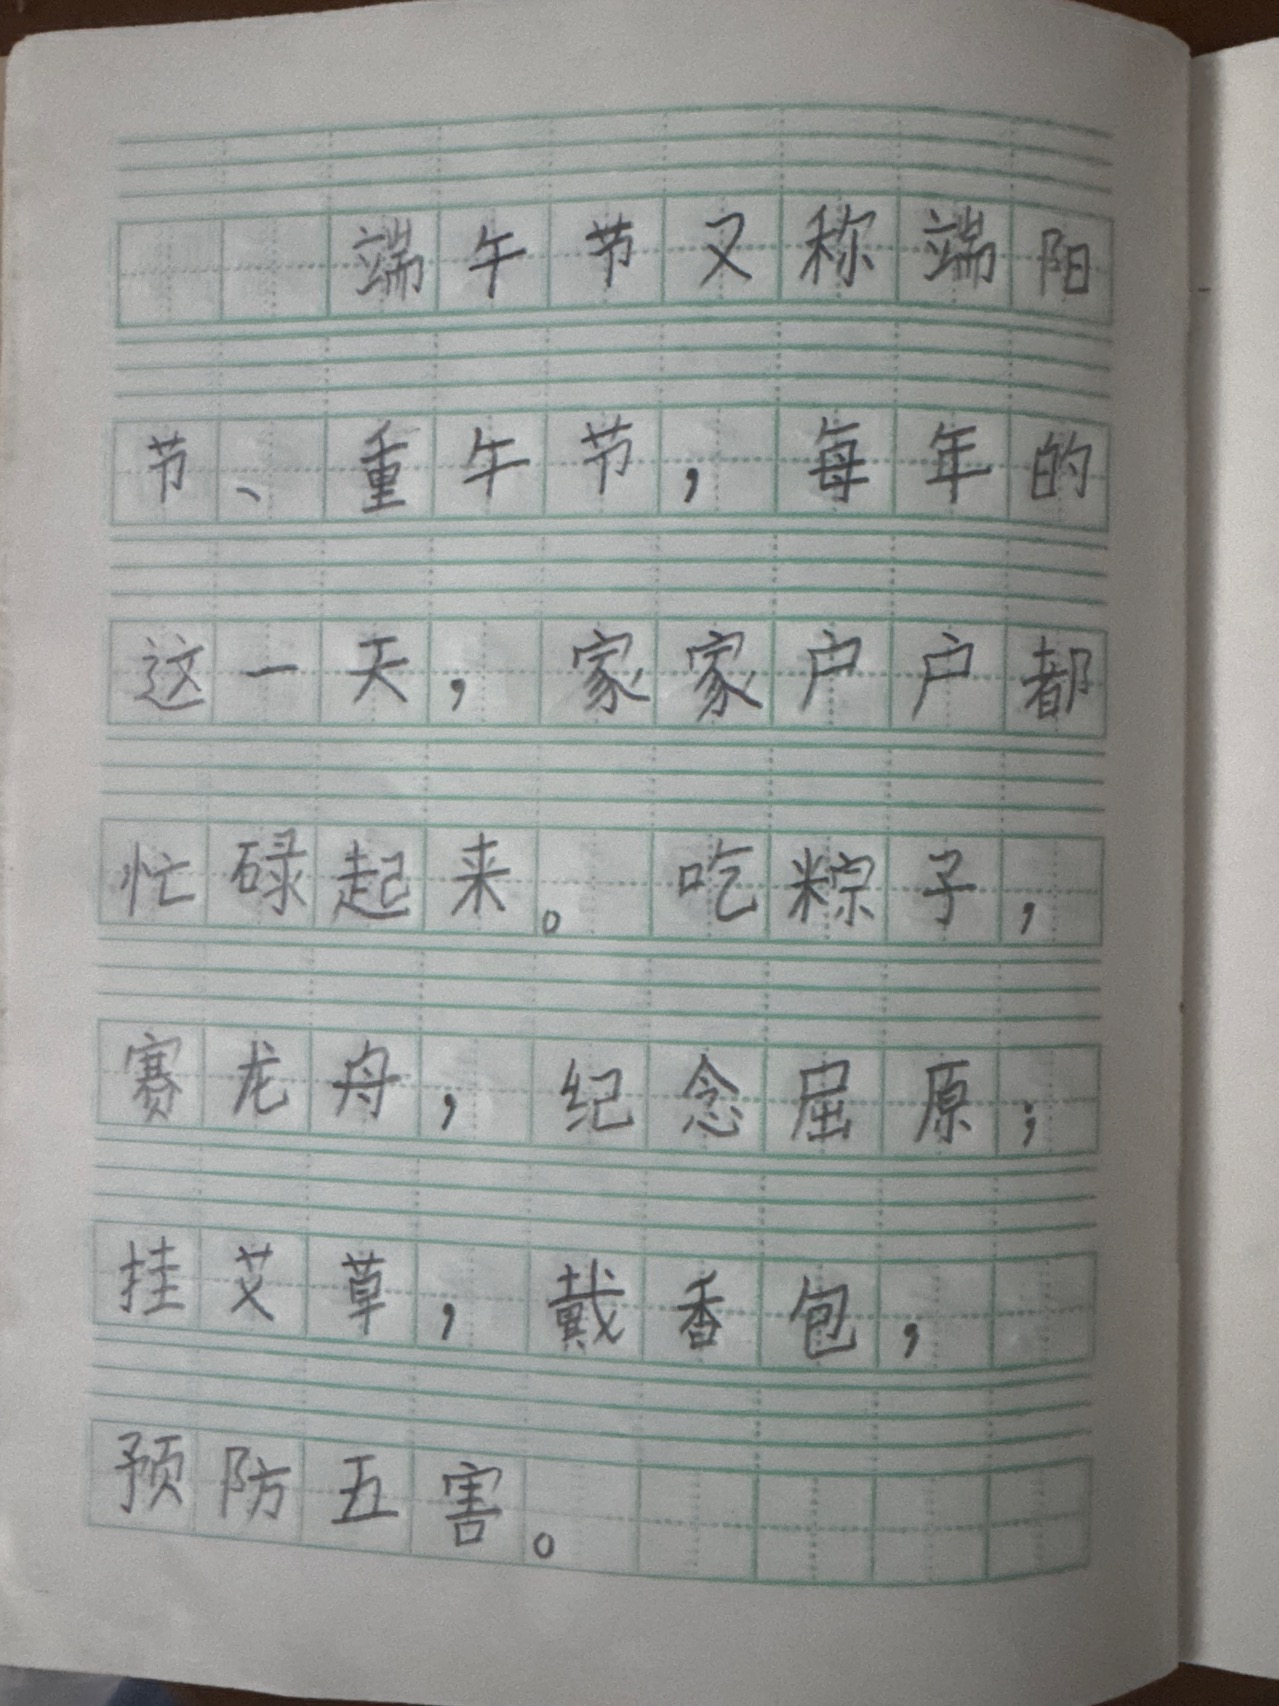 端午节又称端阳
节、重午节，每年的
这一天，家家户户都
忙碌起来。吃粽子，
赛龙舟，纪念屈原；
挂艾草，戴香包，
预防五害。